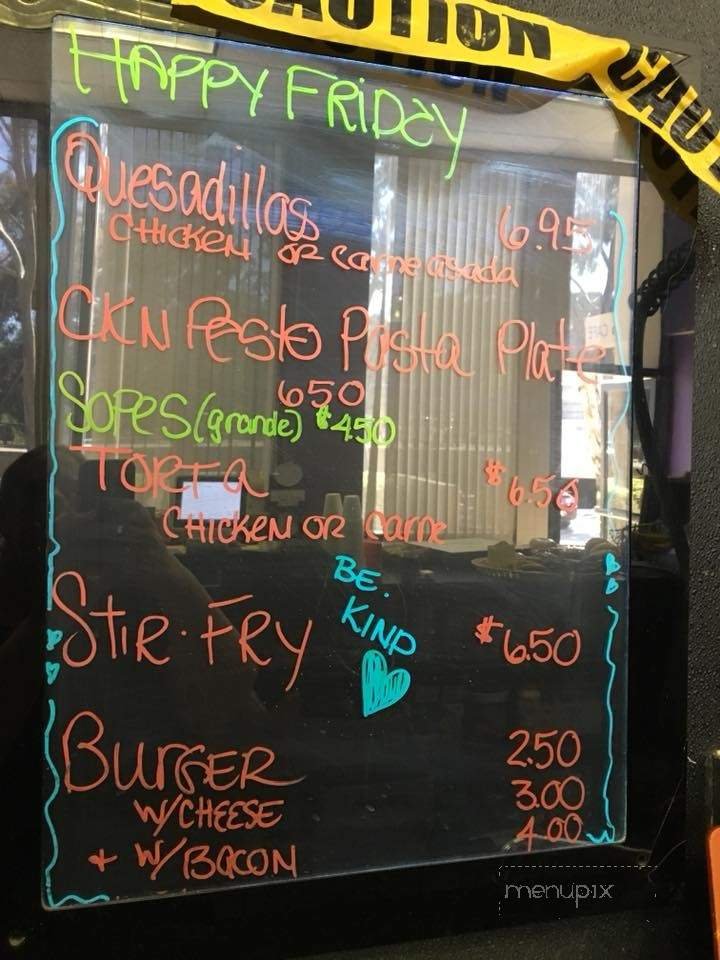 CAUTION
CAU
HAPPY FRIDAY
Quesadillas 6.95
CHICKEN OR carne asada
CKN Pesto Pasta Plate
650
SOPES (grande) $450
TORTA $6.50
CHICKEN OR carne
BE.
KIND
STIR·FRY $6.50
BURGER 2.50
W/CHEESE 3.00
+ W/BACON 4.00
menupix